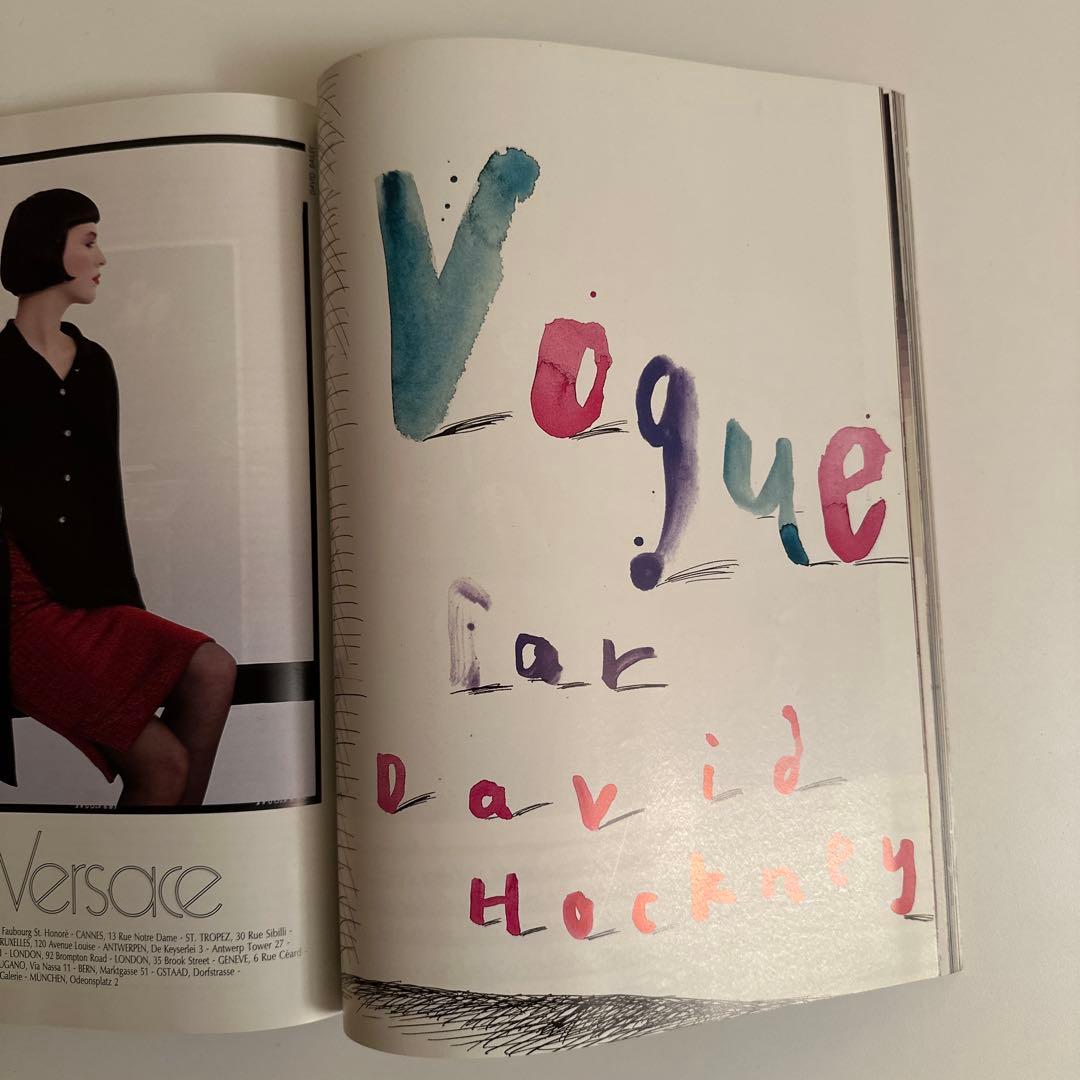 Versace
Faubourg St. Honoré - CANNES, 13 Rue Notre Dame - ST. TROPEZ, 30 Rue Sibilli -
RUXELLES, 120 Avenue Louise - ANTWERPEN, De Keyserlei 3 - Antwerp Tower 27 -
- LONDON, 92 Brompton Road - LONDON, 35 Brook Street - GENEVE, 6 Rue Céard
UGANO, Via Nassa 11 - BERN, Marktgasse 51 - GSTAAD, Dorfstrasse -
Galerie - MÜNCHEN, Odeonsplatz 2
Vogue
Par
David
Hockney